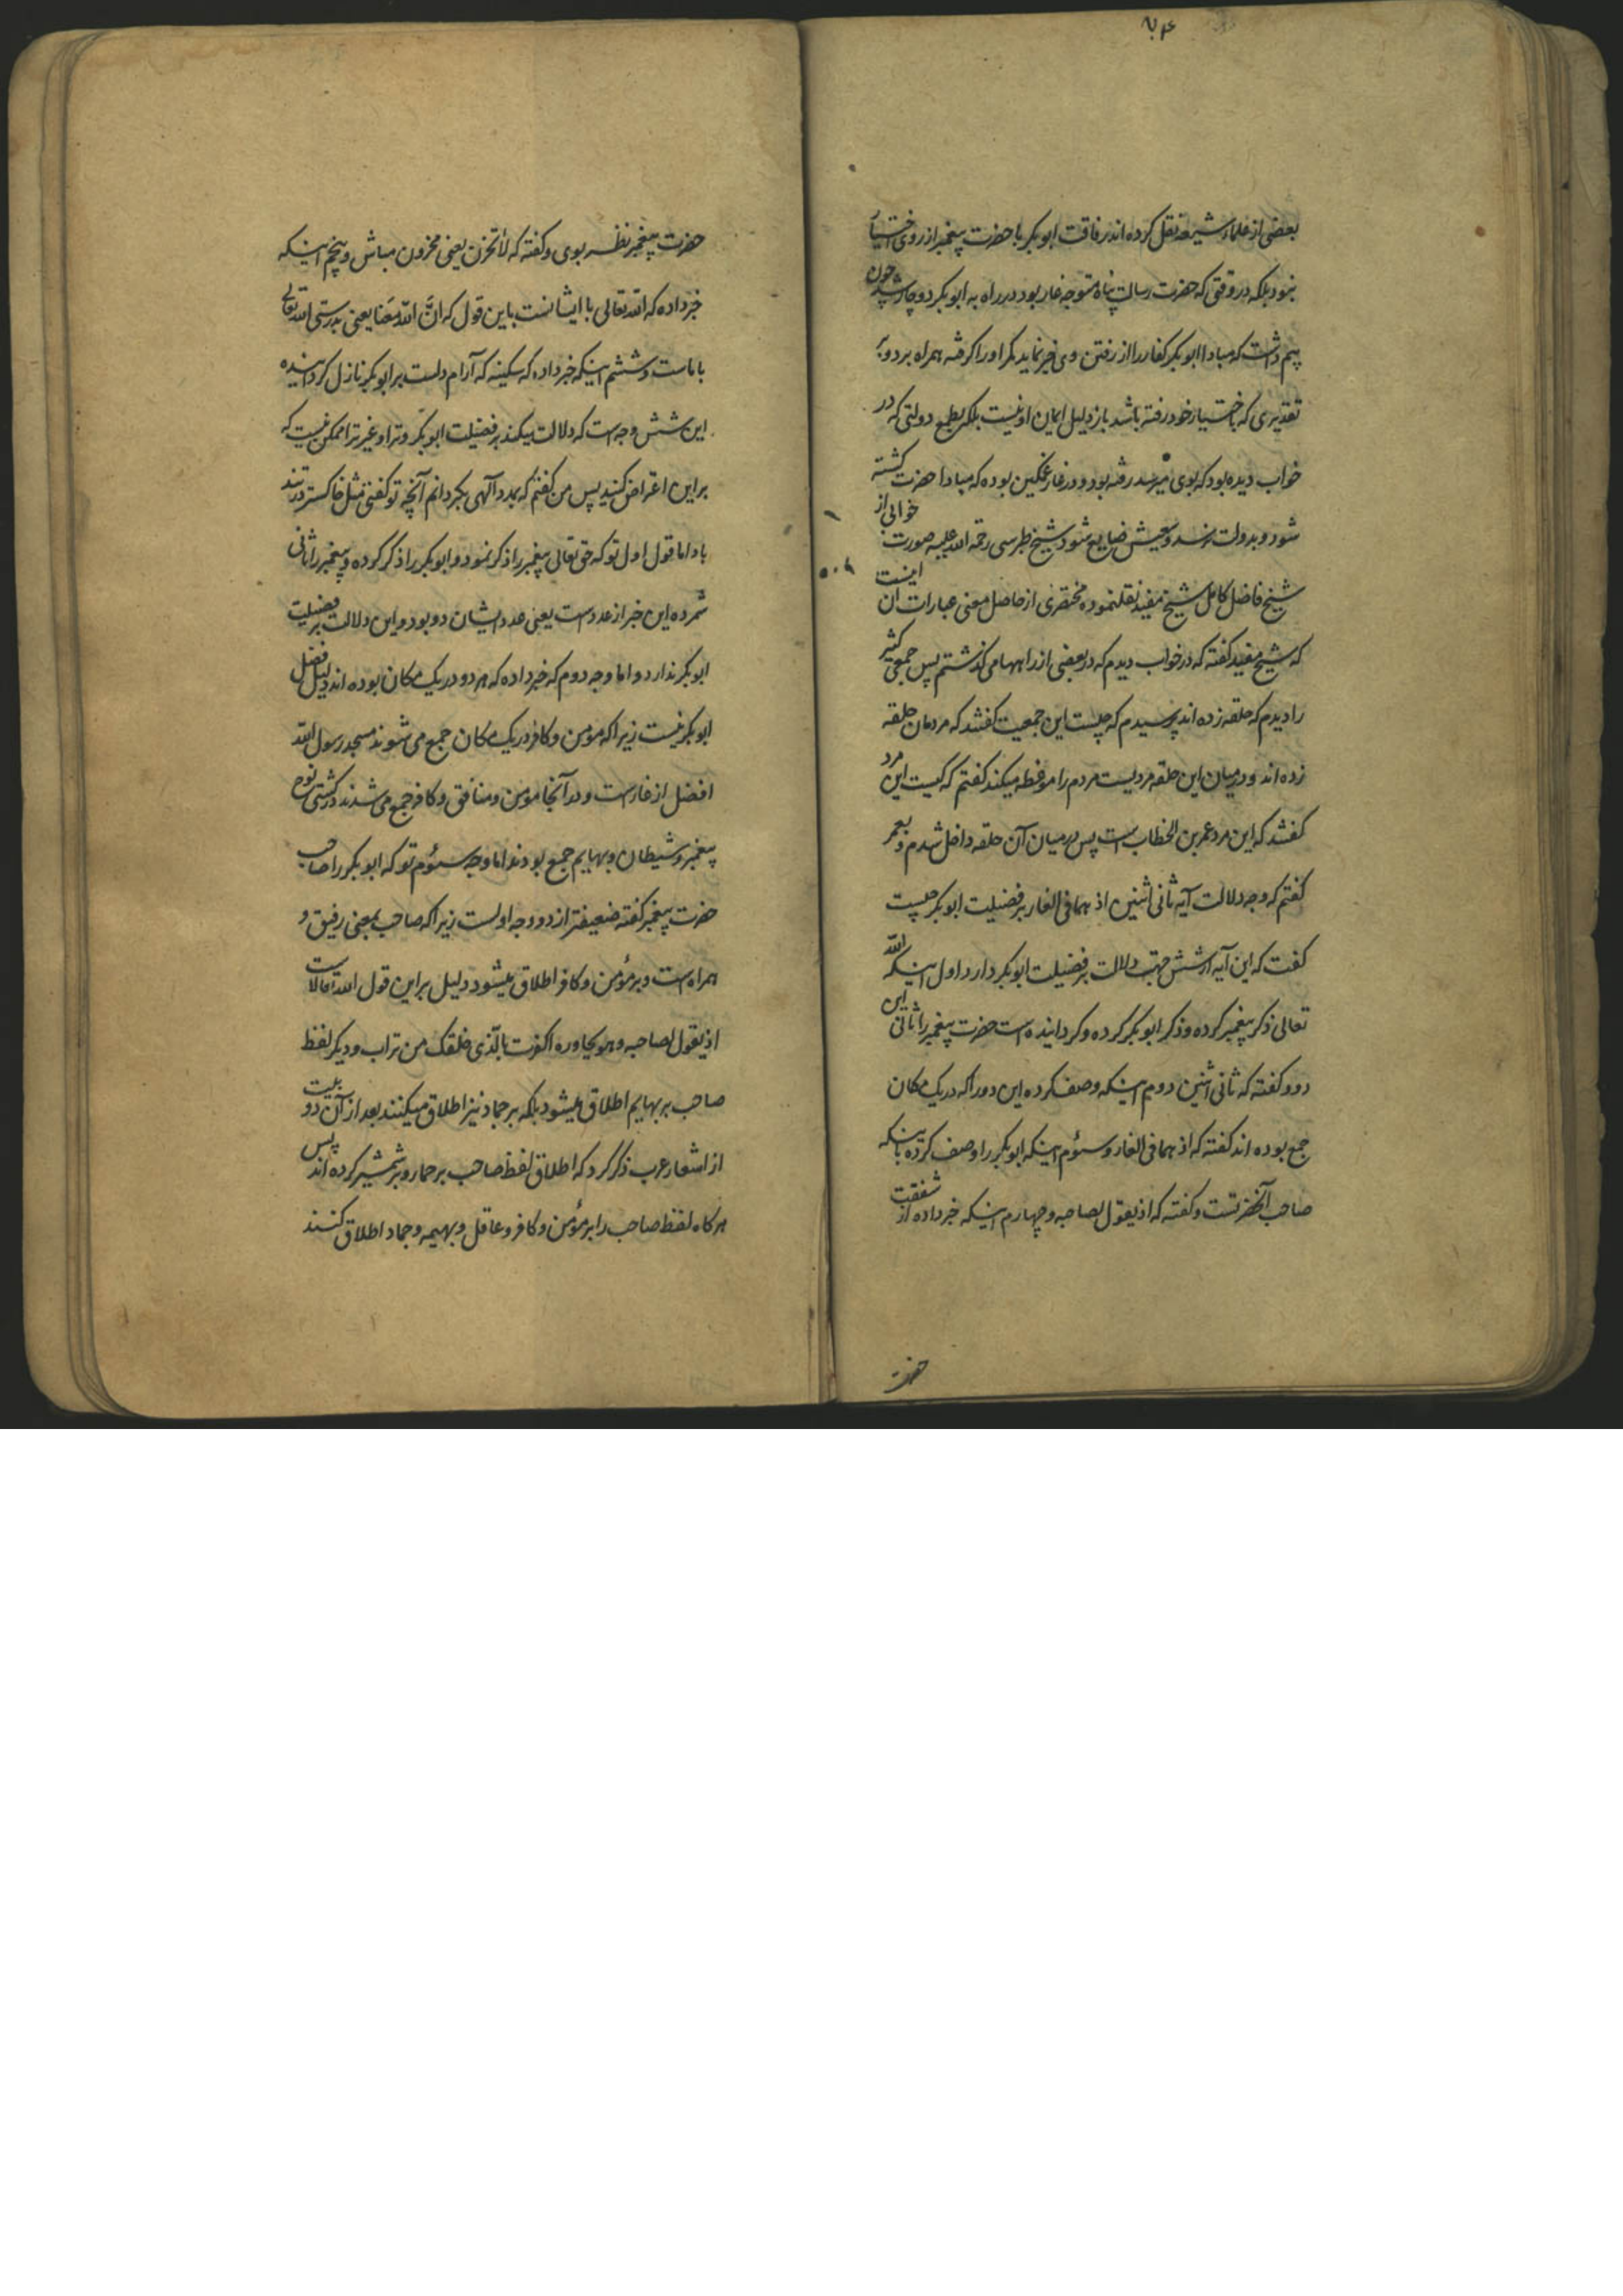 بعضی از علماء شیعه نقل کرده اند رفاقت ابوبکر با حضرت پیغمبر از روی اختیار
نبود بلکه در وقتی که حضرت رسالت پناه متوجه غار بود در راه به ابوبکر دوچار شد چون
بیم داشت که مبادا ابوبکر کفار را از رفتن وی خبر نماید مکر او را کرفته همراه برد و بر
تقدیری که باختیار خود رفته باشد باز دلیل ایمان او نیست بلکه بطمع دولتی که در
خواب دیده بود که بوی میرسد رفته بود و در غار غمکین بوده که مبادا حضرت کشته
شود و بدولت نرسد و سعیش ضایع شود شیخ طبرسی رحمة الله علیه صورت خوابی از
شیخ فاضل کامل شیخ مفید نقلنموده مختصری از حاصل معنی عبارات آن اینست
که شیخ مفید کفته که در خواب دیدم که در بعضی از راهها می کذشتم پس جمعی کثیر
را دیدم که حلقه زده اند پرسیدم که چیست این جمعیت کفتند که مردمان حلقه
زده اند و در میان این حلقه مردیست مردم را موعظه میکند کفتم که کیست این مرد
کفتند که این مرد عمر بن الخطاب است پس در میان آن حلقه داخل شدم و بعمر
کفتم که وجه دلالت آیه ثانی اثنین اذ هما فی الغار بر فضیلت ابوبکر چیست
کفت که این آیه از شش جهت دلالت بر فضیلت ابوبکر دارد اول اینکه الله
تعالی ذکر پیغمبر کرده و ذکر ابوبکر کرده و کردانیده است حضرت پیغمبر را ثانی این
دو و کفته که ثانی اثنین دوم اینکه وصف کرده این دو را که در یک مکان
جمع بوده اند کفته که اذ هما فی الغار و سئوم اینکه ابوبکر را وصف کرده باینکه
صاحب آنحضرتست و کفته که اذ یقول لصاحبه و چهارم اینکه خبر داده از شفقت
حضرت
حضرت پیغمبر نظر بوی و کفته که لا تحزن یعنی محزون مباش و پنجم اینکه
خبر داده که الله تعالی با ایشانست باین قول که انّ الله معنا یعنی بدرستی الله تعالی
با ماست و ششم اینکه خبر داده که سکینه که آرام دلست بر ابوبکر نازل کردانیده
این شش وجه است که دلالت میکند بر فضیلت ابوبکر و ترا و غیر ترا ممکن نیست که
بر این اعتراض کنید پس من کفتم که بمدد آلهی بکردانم آنچه تو کفتی مثل خاکستر در تند
باد اما قول اول تو که حق تعالی پیغمبر را ذکر نمود و ابوبکر را ذکر کرده و پیغمبر را ثانی
شمرده این خبر از عدد است یعنی عدد ایشان دو بود و این دلالت بر فضیلت
ابوبکر ندارد و اما وجه دوم که خبر داده که هر دو در یک مکان بوده اند دلیل فضل
ابوبکر نیست زیرا که مؤمن و کافر در یک مکان جمع می شوند مسجد رسول الله
افضل از غار است و در آنجا مؤمن و منافق و کافر جمع می شدند در کشتی نوح
پیغمبر و شیطان و بهایم جمع بودند اما وجه سئوم تو که ابوبکر را صاحب
حضرت پیغمبر کفته ضعیفتر از دو وجه اولست زیرا که صاحب بمعنی رفیق و
همراه است و بر مؤمن و کافر اطلاق میشود دلیل بر این قول الله تعالاست
اذ یقول لصاحبه و هو یحاوره اکفرت بالّذی خلقک من تراب و دیکر لفظ
صاحب بر بهایم اطلاق میشود بلکه بر جماد نیز اطلاق میکنند بعد از آن دو بیت
از اشعار عرب ذکر کرد که اطلاق لفظ صاحب بر حمار و بر شمشیر کرده اند پس
هرکاه لفظ صاحب را بر مؤمن و کافر و عاقل و بهیمه و جماد اطلاق کنند